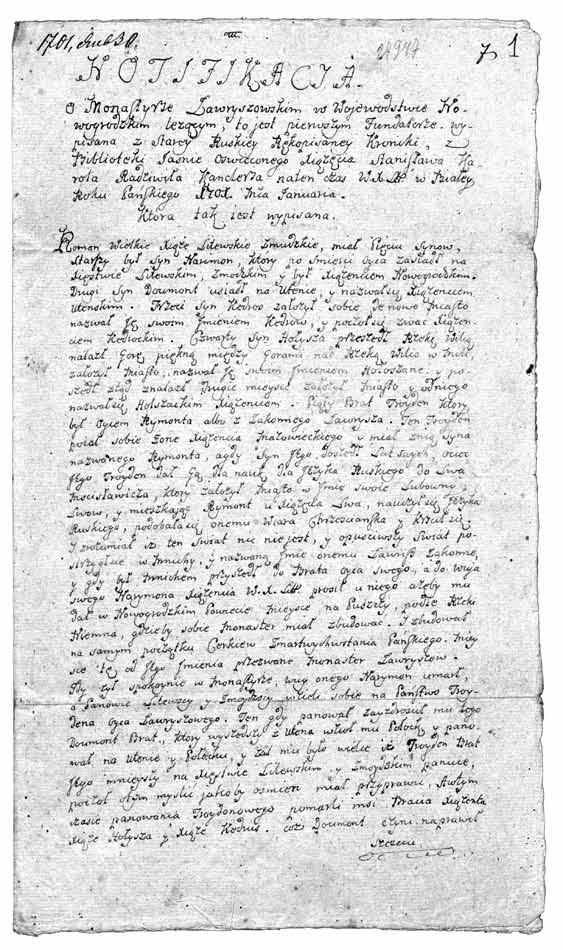 1701, 30.
24947
7 1
NOTIFIKACIA.
O Monastyrze Ławryszowskim w Wojewodstwie No-
wogrodzkim lezącym, to jest pierwszym Fundatorze. wy-
pisana z Starey Ruskiey Rękopisaney Kroniki, z
Biblioteki Jasnie Oswieconego Xiążęcia Stanisława Ka-
rola Radziwiła Kanclerza naten czas W. X. Litt w Białey
Roku Pańskiego 1701. Dnia Januaria.
Ktora tak iest wypisana.
Roman Wielkie Xiąże Litewskie Zmudzkie, miał Pięciu Synow,
Starszy był Syn Narimon, ktory po smierci oyca zasiadł na
Xięstwie Litewskim, Zmodzkim y był Xiążęciem Nowogrodzkim.
Drugi Syn Dowmont usiadł na Utenie, y nazwał się Xiążęciem
Utenskim. Trzeci Syn Kedros załozył sobie de novo Miasto
nazwał Ję swoim Jmieniem Kedrow, y poczoł się zwac Xiążę-
ciem Kedrockim. Czwarty Syn Hołysza przeszedł Rzekę Wilią
nalazł Gorę piękną między Gorami nad Rzeką Wilią w Mili,
załozył Miasto, nazwał Ję swoim Jmieniem Holoszane. y po-
szedł ztąd znalazł Drugie mieysce załozył Miasto y odniego
nazwał się Holszackim Xiążęciem. Piąty Brat Troyden ktory
był Oycem Rymonta albo z Zakonnego Ławrysza. Ten Troyden
poiął sobie Zonę Xiążęcia Mazowieckiego y miał znią Syna
nazwanego Rymonta, agdy Syn Jego doszedł Lat swych, ociec
Jego Troyden dał Go, dla nauki dla Języka Ruskiego do Lwa
Mscisławicza, ktory załozył Miasto w Jmie swoie Lubowni,
Lwow, y mieszkaiąc Rymont u Xiążęcia Lwa, nauczył się Języka
Ruskiego, podobała się onemu Wiara Chrzescianska y krzcił się
I zrozumiał iz ten swiat nic nie jest, y opusciwszy Swiat po-
strzygł się w Mnichy, y nazwano Jmie onemu Ławrisz Zakonne,
y gdy był Mnichem przyszedł do Brata oyca swego, a do wuja
swego Narymona Xiążęcia W. X. Litt. prosił u niego azeby mu
dał w Nowogrodzkim Powiecie Mieysce na Puszczy, podle Rzeki
Niemna, gdzieby sobie Monaster miał zbudowac. I zbudował
na samym początku Cerkiew Zmartwychwstania Pańskiego. Miey
sce te od Jego Jmienia przezwane Monaster Ławryszow.
Gdy zył spokoynie w Monastyrze, wuy onego Narymon umarł,
a Panowie Litewscy y Zmoydzscy wzieli sobie na Państwo Troy-
dena oyca Ławryszowego. Ten gdy panował zayzdroscił mu tego
Dowmont Brat, ktory wyszedszy z Utena wzioł mu Połock, y pano-
wał na Utenie y Połocku, y zal mu było wielce iz Troyden Brat
Jego mnieyszy na Xięstwie Litewskim, y Zmoydzkim panuie,
poczoł otym mysli jakoby osmierc miał przyprawic. Awtym
czasie panowania Troydonowego pomarli insi Bracia Xiążenta
Xiąże Hołysza y Xiąże Kedrus. coz Dowmont czyni naprawił
Szczciu.